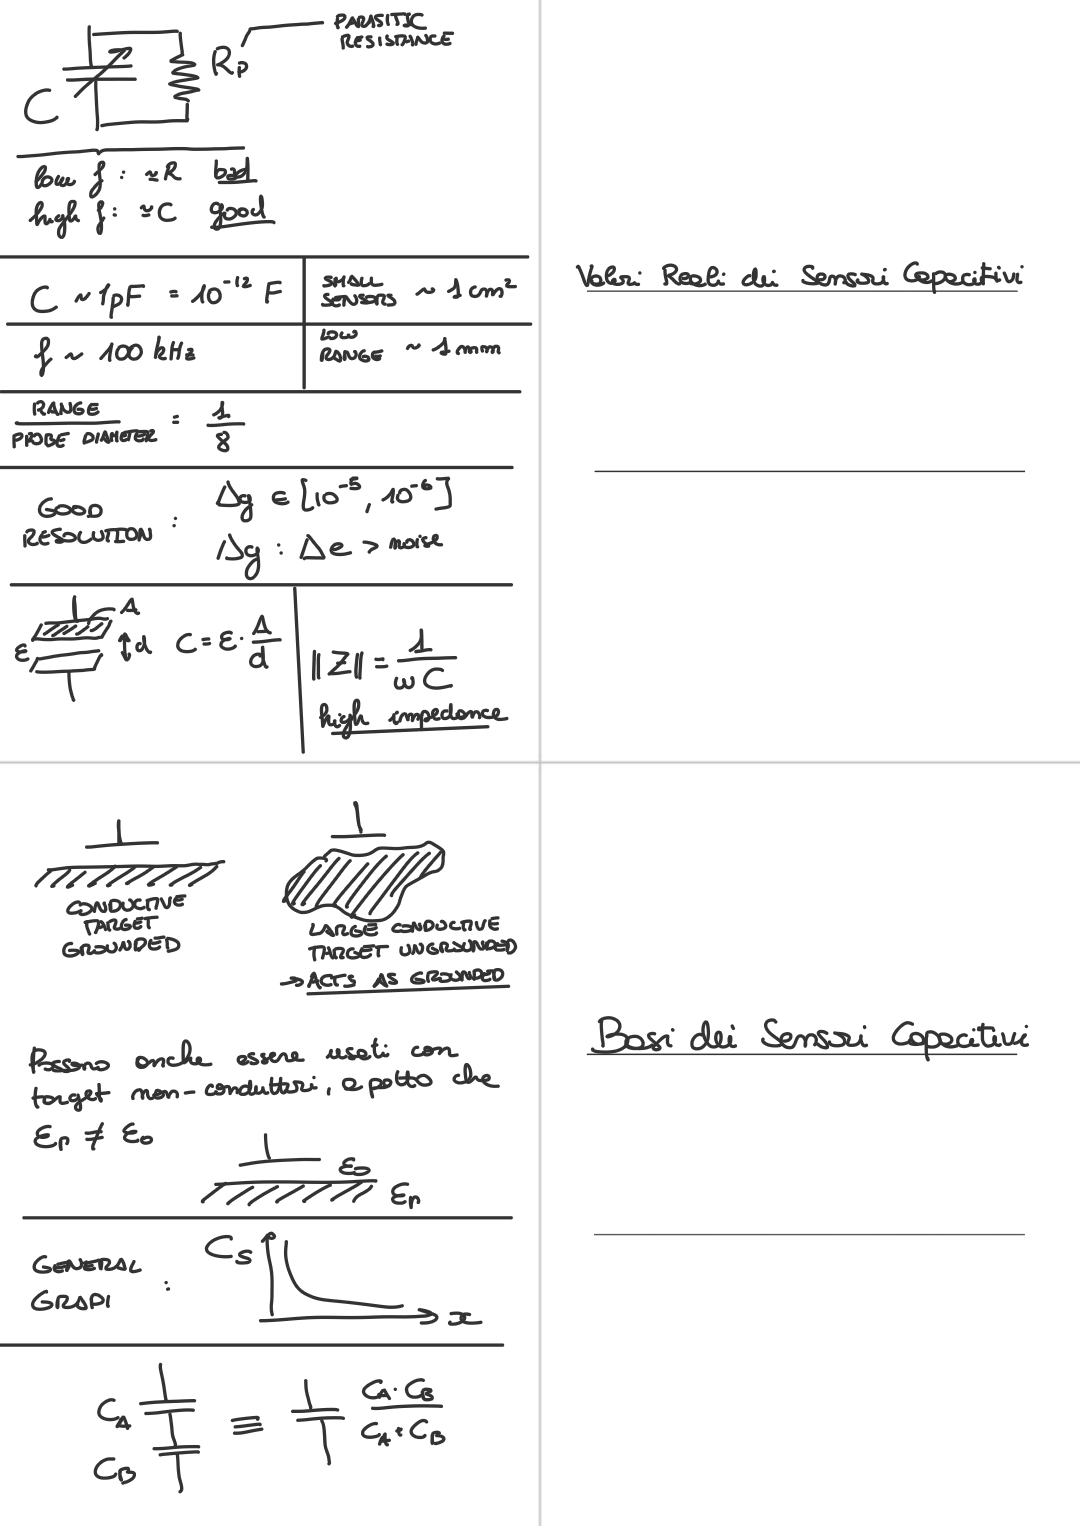 PARASITIC
RESISTANCE
Rp
C
low f : ≃R bad
high f : ≃C good
C ~ 1pF = 10⁻¹² F
SMALL
SENSORS ~ 1 cm²
f ~ 100 kHz
LOW
RANGE ~ 1 mm
RANGE
PROBE DIAMETER
=
1
8
GOOD
RESOLUTION :
Δg ∈ [10⁻⁵, 10⁻⁶]
Δg : Δe > noise
A
ε
d
C = ε · A/d
||Z|| = 1/ωC
high impedance
Valori Reali dei Sensori Capacitivi
CONDUCTIVE
TARGET
GROUNDED
LARGE CONDUCTIVE
TARGET UNGROUNDED
→ ACTS AS GROUNDED
Possono anche essere usati con
target non-conduttori, a patto che
εr ≠ ε0
ε0
εr
GENERAL
GRAPH :
Cs
x
CA
CB
≡
CA · CB
CA + CB
Basi dei Sensori Capacitivi